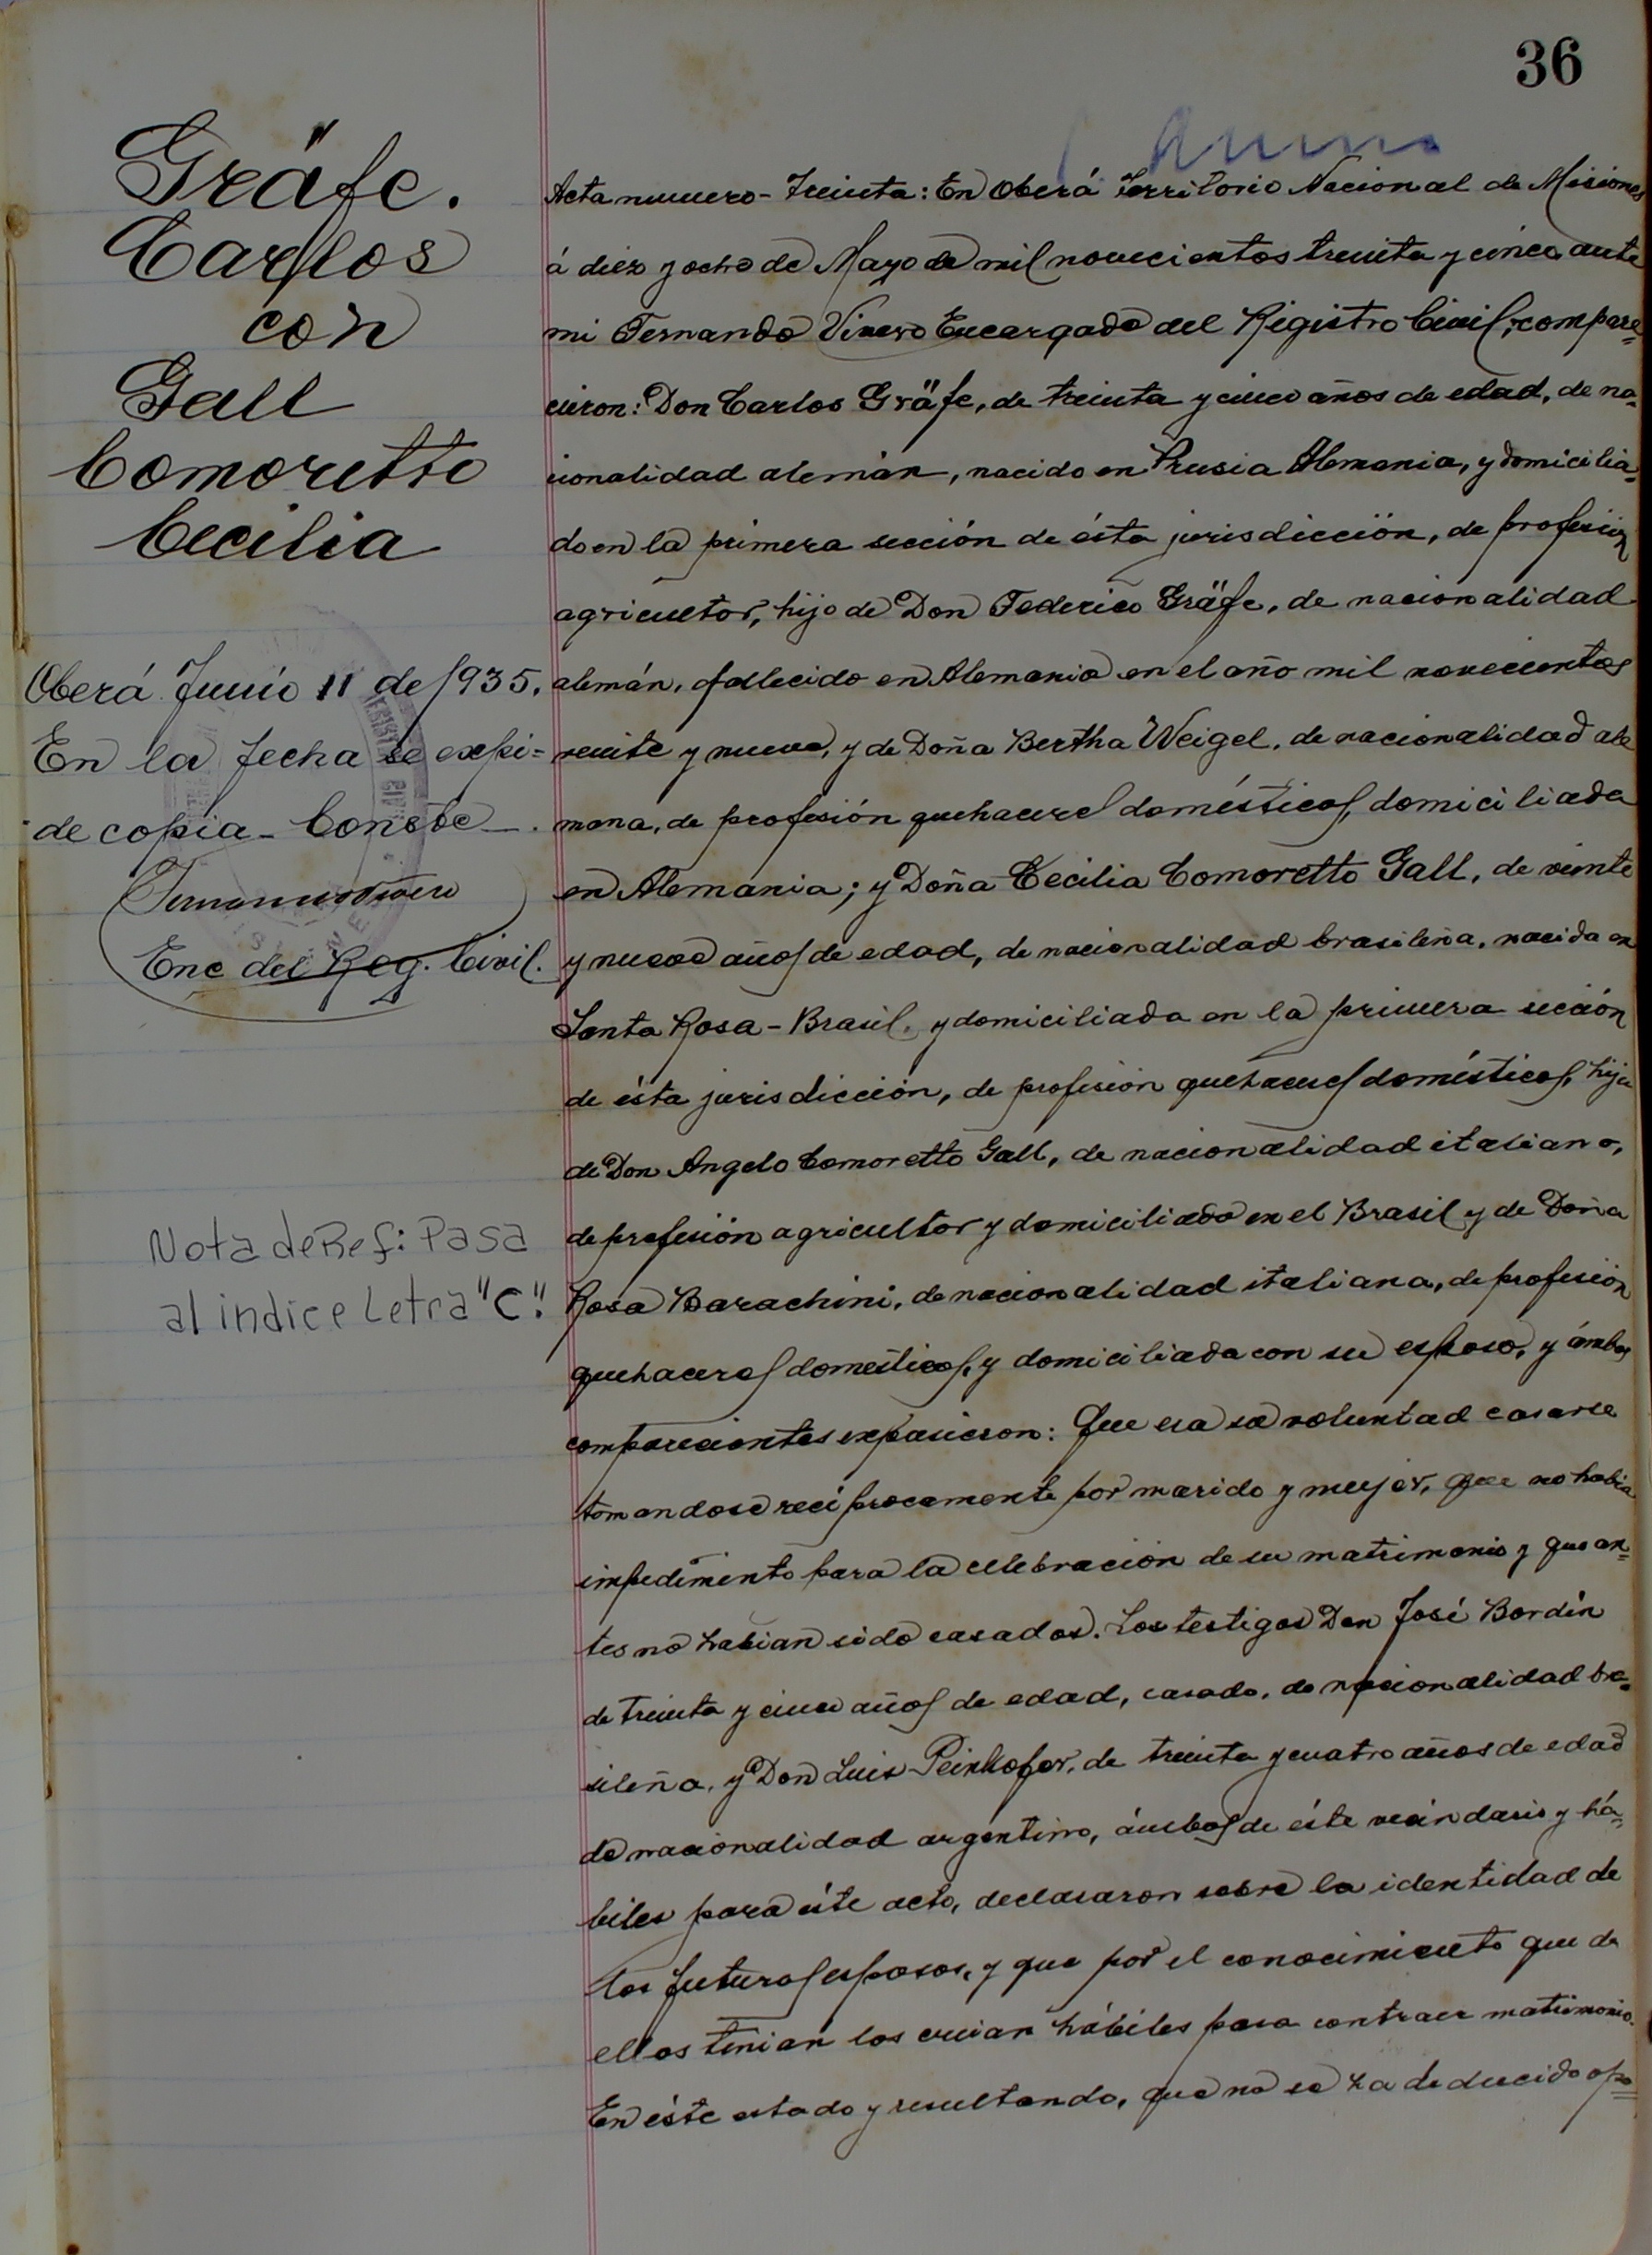 36
Gräfe.
Carlos
con
Gall
Comoretto
Cecilia
Oberá Junio 11 de 1935.
En la fecha se expi=
de copia - Conste -.
Enc del Reg. Civil.
Nota de Ref: Pasa
al indice Letra "C".
Acta numero - Treinta: En Oberá Territorio Nacional de Misiones
á diez y ocho de Mayo de mil novecientos treinta y cinco, ante
mi Fernando Vivero Encargado del Registro Civil, compare=
cieron: Don Carlos Gräfe, de treinta y cinco años de edad, de na-
cionalidad alemán, nacido en Prusia Alemania, y domicilia=
do en la primera sección de ésta jurisdicción, de profesión
agricultor, hijo de Don Federico Gräfe, de nacionalidad
alemán, fallecido en Alemania en el año mil novecientos
veinte y nueve, y de Doña Bertha Weigel, de nacionalidad ale
mana, de profesión quehaceres domésticos, domiciliada
en Alemania; y Doña Cecilia Comoretto Gall, de veinte
y nueve años de edad, de nacionalidad brasileña, nacida en
Santa Rosa - Brasil, y domiciliada en la primera sección
de ésta jurisdicción, de profesión quehaceres domésticos, hija
de Don Angelo Comoretto Gall, de nacionalidad italiano,
de profesión agricultor y domiciliado en el Brasil y de Doña
Rosa Barachini, de nacionalidad italiana, de profesión
quehaceres domésticos, y domiciliada con su esposo, y ámbos
comparecientes expusieron: Que era su voluntad casarse
tomandose recíprocamente por marido y mujer, que no habia
impedimento para la celebración de su matrimonio y que an=
tes no habian sido casados. Los testigos Don José Bordín
de treinta y cinco años de edad, casado, de nacionalidad bra=
sileña, y Don Luis Peinkofer, de treinta y cuatro años de edad
de nacionalidad argentino, ámbos de éste vecindario y há=
biles para éste acto, declararon sobre la identidad de
los futuros esposos, y que por el conocimiento que de
ellos tenian los creian hábiles para contraer matrimonio.
En éste estado y resultando, que no se ha deducido opo=